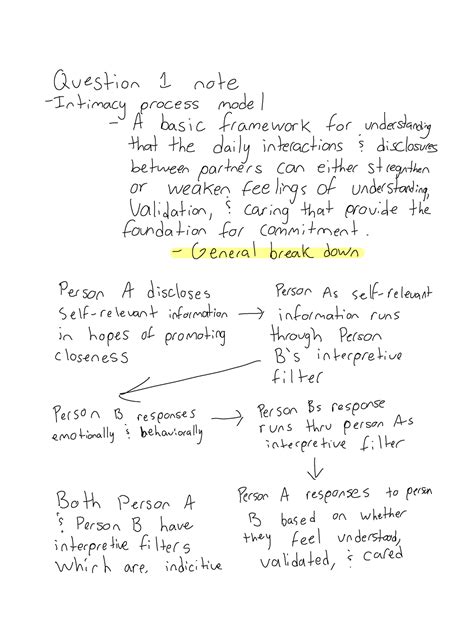 Question 1 note
- Intimacy process model
- A basic framework for understanding
that the daily interactions & disclosures
between partners can either stregnthen
or weaken feelings of understanding,
validation, & caring that provide the
foundation for commitment.
- General break down
Person A discloses
self-relevant information →
in hopes of promoting
closeness
Person As self-relevant
information runs
through Person
B's interpretive
filter
Person B responses →
emotionally & behaviorally
Person Bs response
runs thru person As
interpretive filter
↓
Person A responses to person
B based on whether
they feel understood,
validated, & cared
Both Person A
& Person B have
interpretive filters
which are, indicitive